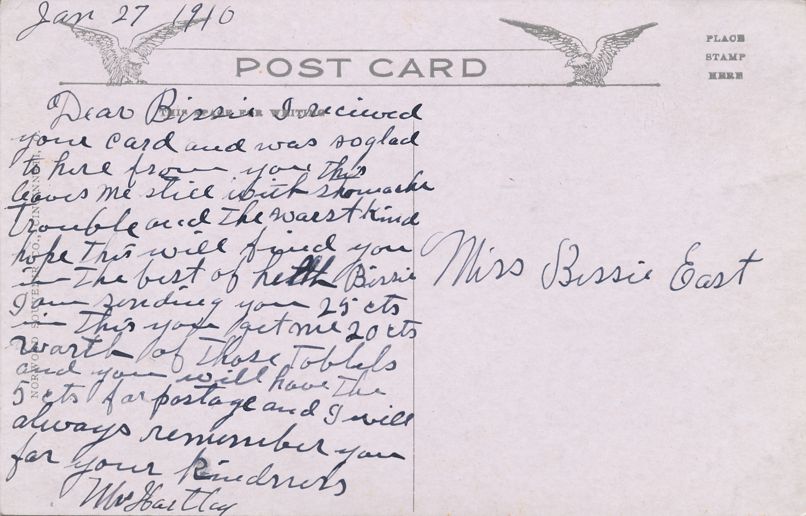 Jan 27 1910
POST CARD
PLACE
STAMP
HERE
THIS SPACE FOR WRITING
Dear Bissie I reciued
your card and was soglad
to here from you this
leavs me still with stomache
trouble and the warst kind
hope this will find you
in the best of helth Bissie
I am sending you 25 cts
in this you get me 20 cts
warth of those tobblets
and you will have the
5 cts far postage and I will
always remember you
far your kindness
Mr Hartley
Miss Bissie East
NORWOOD SOUVENIR CO., CINCINNATI,